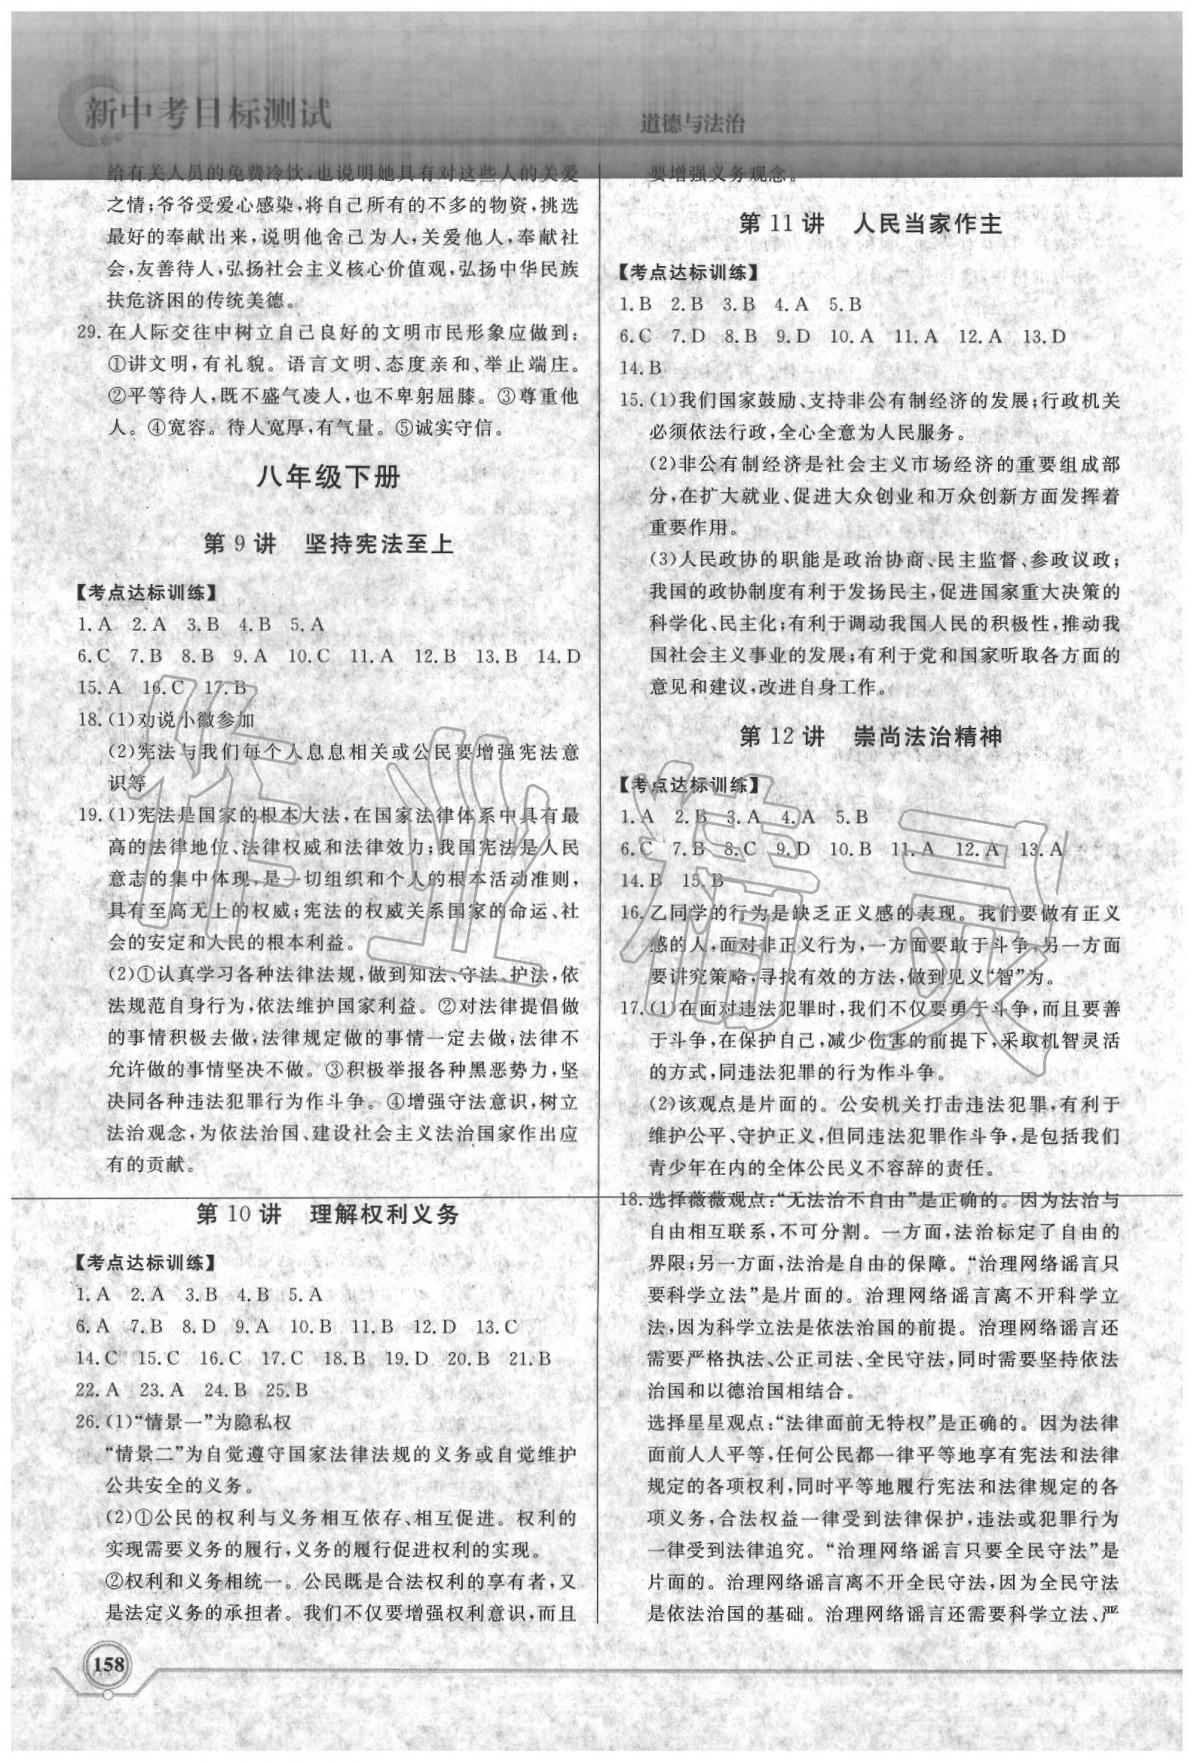 新中考目标测试
道德与法治
给有关人员的免费冷饮,也说明她具有对这些人的关爱
之情;爷爷受爱心感染,将自己所有的不多的物资,挑选
最好的奉献出来,说明他舍己为人,关爱他人,奉献社
会,友善待人,弘扬社会主义核心价值观,弘扬中华民族
扶危济困的传统美德。
29.在人际交往中树立自己良好的文明市民形象应做到:
①讲文明,有礼貌。语言文明、态度亲和、举止端庄。
②平等待人,既不盛气凌人,也不卑躬屈膝。③尊重他
人。④宽容。待人宽厚,有气量。⑤诚实守信。
八年级下册
第9讲 坚持宪法至上
【考点达标训练】
1.A 2.A 3.B 4.B 5.A
6.C 7.B 8.B 9.A 10.C 11.A 12.B 13.B 14.D
15.A 16.C 17.B
18.(1)劝说小徽参加
(2)宪法与我们每个人息息相关或公民要增强宪法意
识等
19.(1)宪法是国家的根本大法,在国家法律体系中具有最
高的法律地位、法律权威和法律效力;我国宪法是人民
意志的集中体现,是一切组织和个人的根本活动准则,
具有至高无上的权威;宪法的权威关系国家的命运、社
会的安定和人民的根本利益。
(2)①认真学习各种法律法规,做到知法、守法、护法,依
法规范自身行为,依法维护国家利益。②对法律提倡做
的事情积极去做,法律规定做的事情一定去做,法律不
允许做的事情坚决不做。③积极举报各种黑恶势力,坚
决同各种违法犯罪行为作斗争。④增强守法意识,树立
法治观念,为依法治国、建设社会主义法治国家作出应
有的贡献。
第10讲 理解权利义务
【考点达标训练】
1.A 2.A 3.B 4.B 5.A
6.A 7.B 8.D 9.A 10.B 11.B 12.D 13.C
14.C 15.C 16.C 17.C 18.B 19.D 20.B 21.B
22.A 23.A 24.B 25.B
26.(1)“情景一”为隐私权
“情景二”为自觉遵守国家法律法规的义务或自觉维护
公共安全的义务。
(2)①公民的权利与义务相互依存、相互促进。权利的
实现需要义务的履行,义务的履行促进权利的实现。
②权利和义务相统一。公民既是合法权利的享有者,又
是法定义务的承担者。我们不仅要增强权利意识,而且
要增强义务观念。
第11讲 人民当家作主
【考点达标训练】
1.B 2.B 3.B 4.A 5.B
6.C 7.D 8.B 9.D 10.A 11.A 12.A 13.D
14.B
15.(1)我们国家鼓励、支持非公有制经济的发展;行政机关
必须依法行政,全心全意为人民服务。
(2)非公有制经济是社会主义市场经济的重要组成部
分,在扩大就业、促进大众创业和万众创新方面发挥着
重要作用。
(3)人民政协的职能是政治协商、民主监督、参政议政;
我国的政协制度有利于发扬民主,促进国家重大决策的
科学化、民主化;有利于调动我国人民的积极性,推动我
国社会主义事业的发展;有利于党和国家听取各方面的
意见和建议,改进自身工作。
第12讲 崇尚法治精神
【考点达标训练】
1.A 2.B 3.A 4.A 5.B
6.C 7.B 8.C 9.D 10.B 11.A 12.A 13.A
14.B 15.B
16.乙同学的行为是缺乏正义感的表现。我们要做有正义
感的人,面对非正义行为,一方面要敢于斗争,另一方面
要讲究策略,寻找有效的方法,做到见义“智”为。
17.(1)在面对违法犯罪时,我们不仅要勇于斗争,而且要善
于斗争,在保护自己,减少伤害的前提下,采取机智灵活
的方式,同违法犯罪的行为作斗争。
(2)该观点是片面的。公安机关打击违法犯罪,有利于
维护公平、守护正义,但同违法犯罪作斗争,是包括我们
青少年在内的全体公民义不容辞的责任。
18.选择薇薇观点:“无法治不自由”是正确的。因为法治与
自由相互联系,不可分割。一方面,法治标定了自由的
界限;另一方面,法治是自由的保障。“治理网络谣言只
要科学立法”是片面的。治理网络谣言离不开科学立
法,因为科学立法是依法治国的前提。治理网络谣言还
需要严格执法、公正司法、全民守法,同时需要坚持依法
治国和以德治国相结合。
选择星星观点:“法律面前无特权”是正确的。因为法律
面前人人平等,任何公民都一律平等地享有宪法和法律
规定的各项权利,同时平等地履行宪法和法律规定的各
项义务,合法权益一律受到法律保护,违法或犯罪行为
一律受到法律追究。“治理网络谣言只要全民守法”是
片面的。治理网络谣言离不开全民守法,因为全民守法
是依法治国的基础。治理网络谣言还需要科学立法、严
158
作业精灵